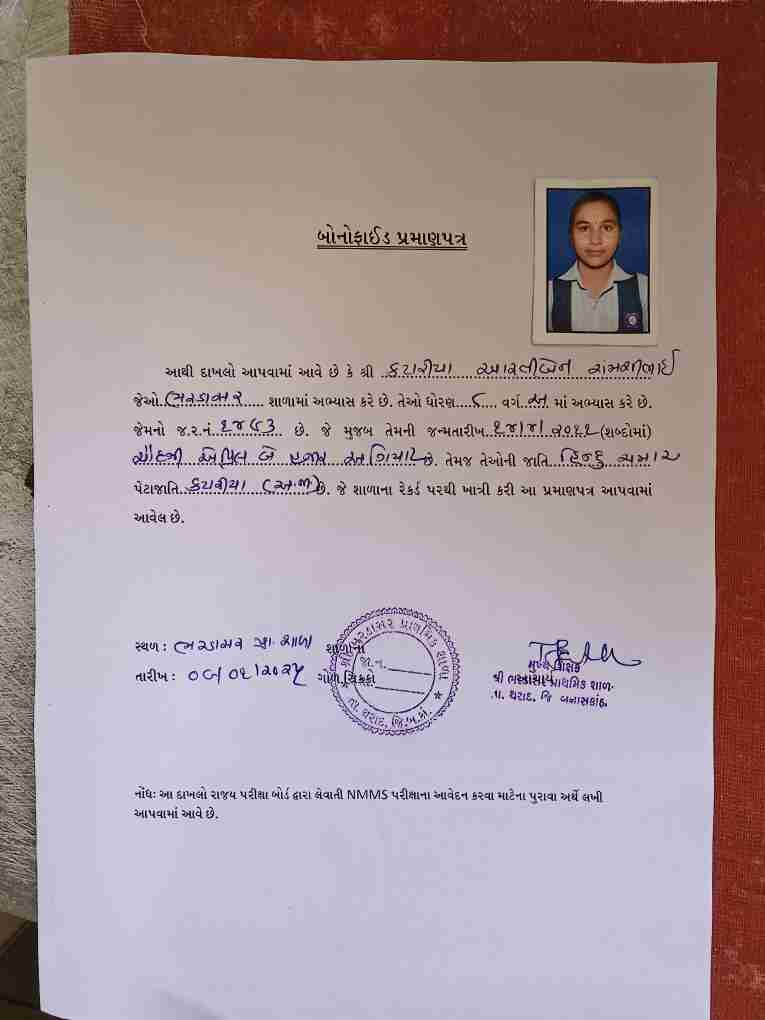 બોનોફાઈડ પ્રમાણપત્ર
આથી દાખલો આપવામાં આવે છે કે શ્રી કટારીયા આરતીબેન રામશીભાઈ
જેઓ ભરડાસર શાળામાં અભ્યાસ કરે છે. તેઓ ધોરણ ૮ વર્ગ અ માં અભ્યાસ કરે છે.
જેમનો જ.ર.નં ૨૪૬૩ છે. જે મુજબ તેમની જન્મતારીખ ૧૪/૪/૨૦૧૧ (શબ્દોમાં)
ચૌદમી એપ્રિલ બે હજાર અગિયાર છે. તેમજ તેઓની જાતિ હિન્દુ ચમાર
પેટાજાતિ કટારીયા (અ.જા) છે. જે શાળાના રેકર્ડ પરથી ખાત્રી કરી આ પ્રમાણપત્ર આપવામાં
આવેલ છે.
સ્થળ : ભરડાસર પ્રા. શાળા
શાળાના
તારીખ :
ગોળ સિક્કો
શ્રી ભરડાસર પ્રાથમિક શાળા
જા.ન.
તા. થરાદ, જિ.બ.કાં.
મુખ્ય શિક્ષક
આચાર્ય
શ્રી ભરડાસર પ્રાથમિક શાળ
તા. થરાદ, જિ બનાસકાંઠા
નોંધઃ આ દાખલો રાજય પરીક્ષા બોર્ડ દ્વારા લેવાતી NMMS પરીક્ષાના આવેદન કરવા માટેના પુરાવા અર્થે લખી
આપવામાં આવે છે.